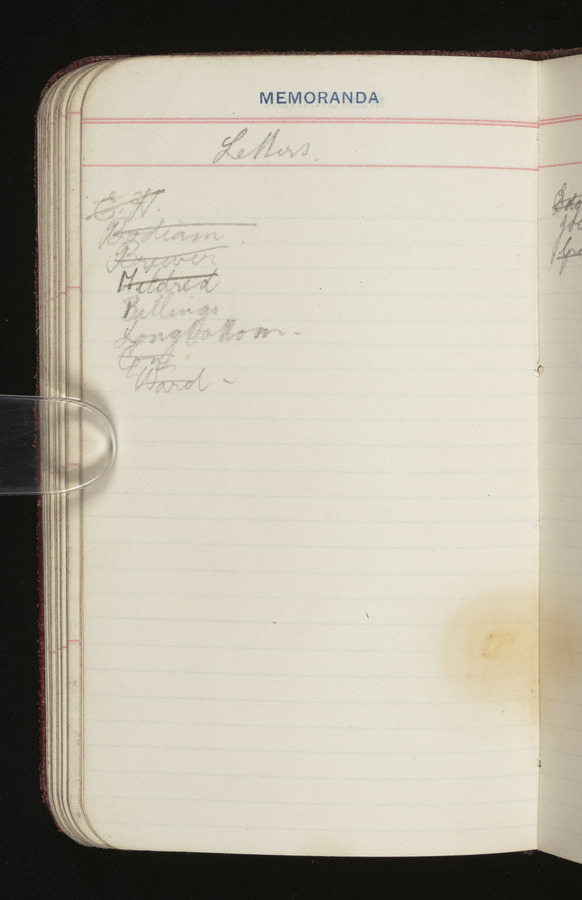 MEMORANDA
Letters.
E. H.
Bodiam.
Brewer
Mildred
Billings
Longbottom -
Con.
Ward -